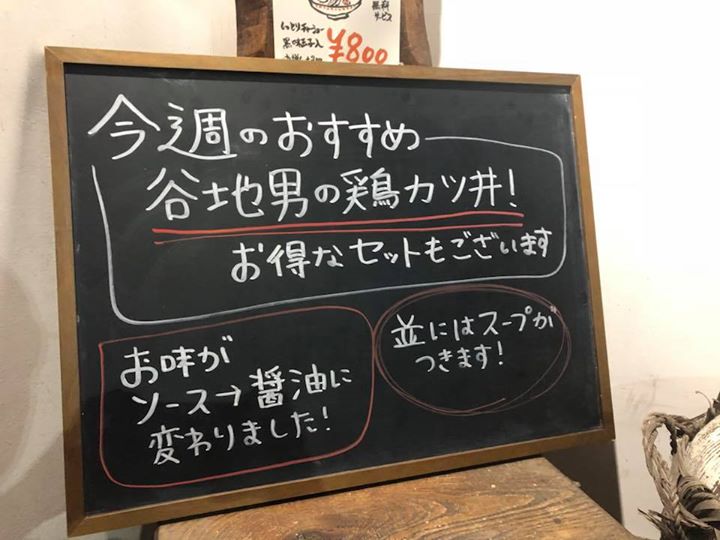 無料
サービス
しっとりチャーシュー
¥800
今週のおすすめ
谷地男の鶏カツ丼!
お得なセットもございます
お味が
ソース→醤油に
変わりました!
並にはスープが
つきます!